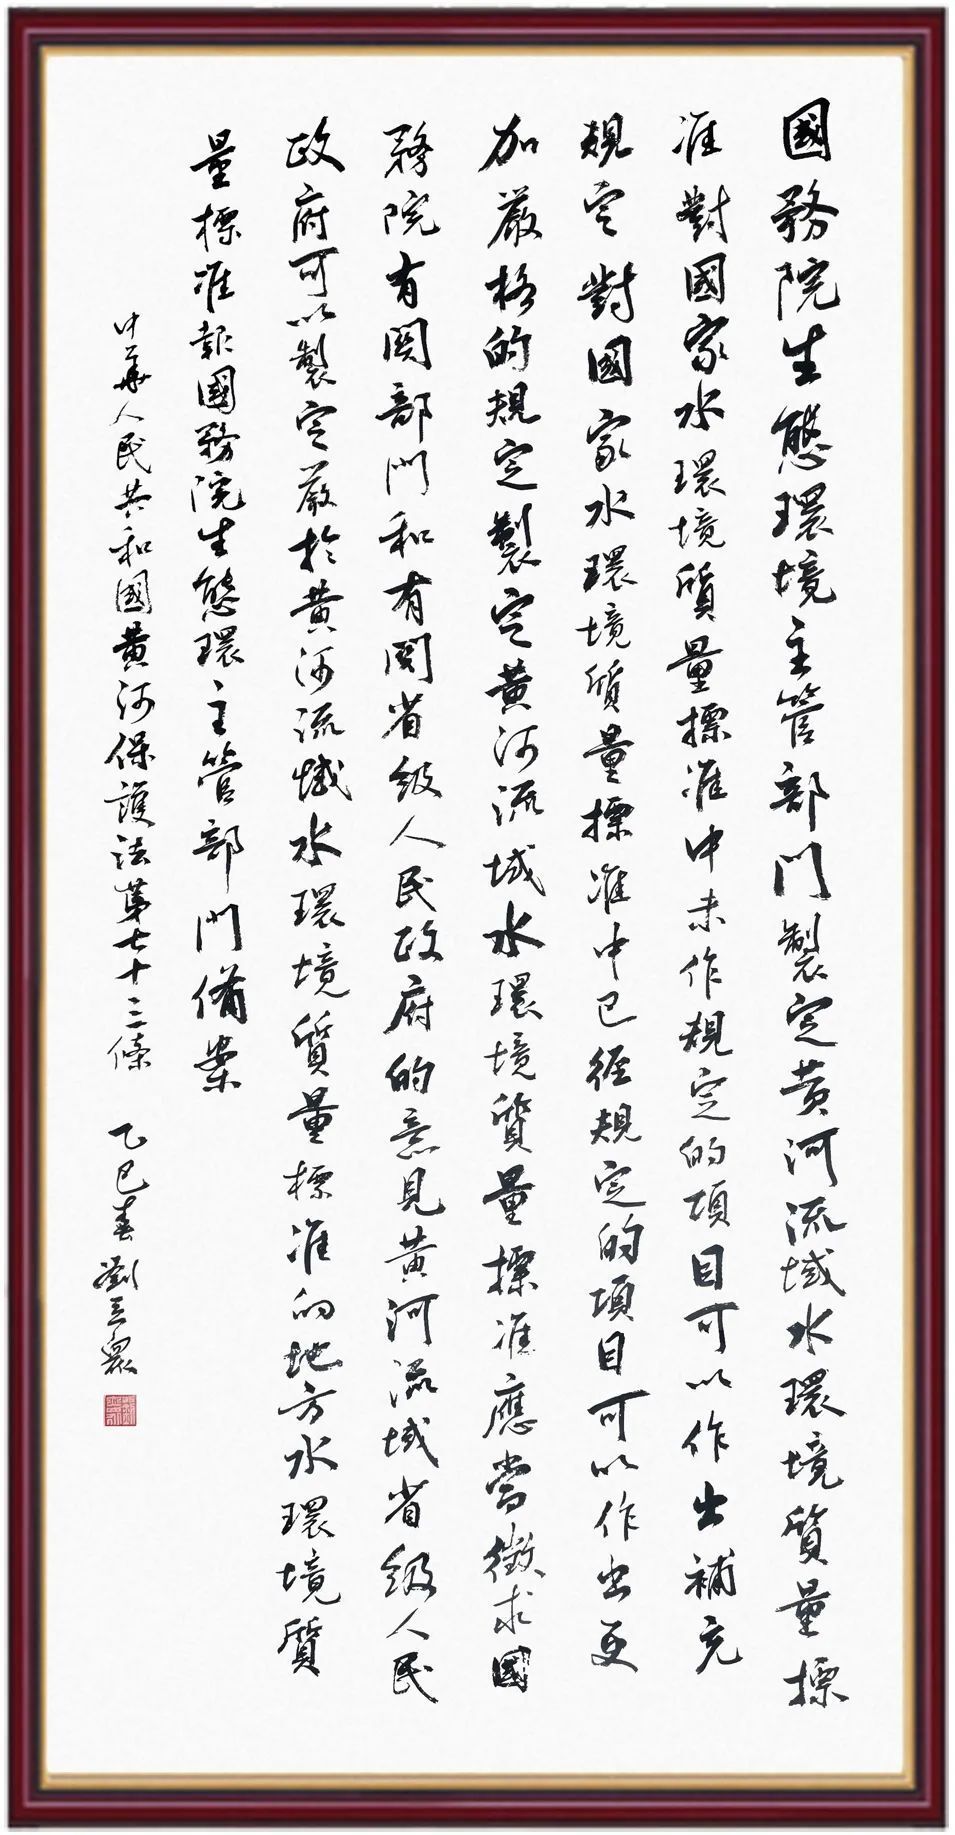 國務院生態環境主管部門製定黄河流域水環境質量標
准對國家水環境質量標准中未作規定的項目可以作出補充
規定對國家水環境質量標准中已經規定的項目可以作出更
加嚴格的規定製定黄河流域水環境質量標准應當徵求國
務院有関部門和有関省級人民政府的意見黄河流域省級人民
政府可以製定嚴於黄河流域水環境質量標准的地方水環境質
量標准報國務院生態環主管部門備案
中華人民共和國黄河保護法第七十三條 乙巳春劉